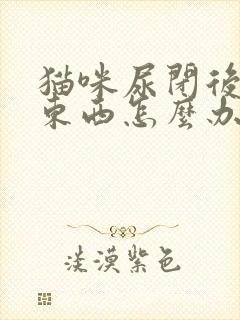 猫咪尿閉後
東西怎麼办
淡漠紫色